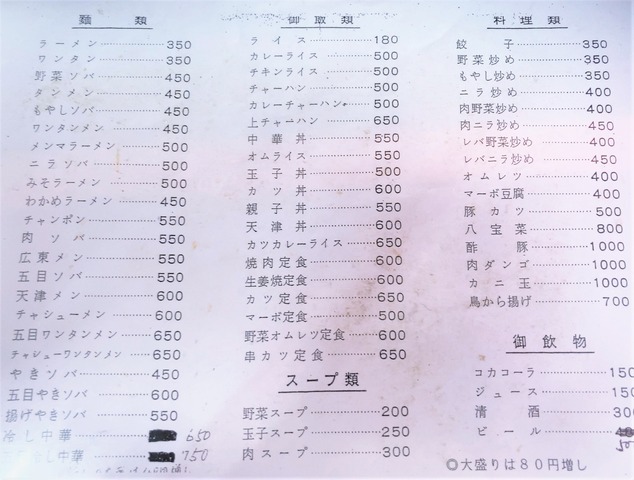 麺類
ラーメン 350
ワンタン 350
野菜ソバ 450
タンメン 450
もやしソバ 450
ワンタンメン 450
メンマラーメン 500
ニラソバ 500
みそラーメン 500
わかめラーメン 450
チャンポン 550
肉ソバ 550
広東メン 550
五目ソバ 550
天津メン 600
チャシューメン 600
五目ワンタンメン 650
チャシューワンタンメン 650
やきソバ 450
五目やきソバ 600
揚げやきソバ 550
冷し中華 650
冷し中華 750
御飯類
ライス 180
カレーライス 500
チキンライス 500
チャーハン 500
カレーチャーハン 500
上チャーハン 650
中華丼 550
オムライス 550
玉子丼 500
カツ丼 600
親子丼 550
天津丼 600
カツカレーライス 650
焼肉定食 600
生姜焼定食 600
カツ定食 650
マーボ定食 500
野菜オムレツ定食 600
串カツ定食 650
スープ類
野菜スープ 200
玉子スープ 250
肉スープ 300
料理類
餃子 350
野菜炒め 350
もやし炒め 350
ニラ炒め 400
肉野菜炒め 400
肉ニラ炒め 450
レバ野菜炒め 400
レバニラ炒め 450
オムレツ 400
マーボ豆腐 400
豚カツ 500
八宝菜 800
酢豚 1000
肉ダンゴ 1000
カニ玉 1000
鳥から揚げ 700
御飲物
コカコーラ 150
ジュース 150
清酒 300
ビール
◎大盛りは80円増し